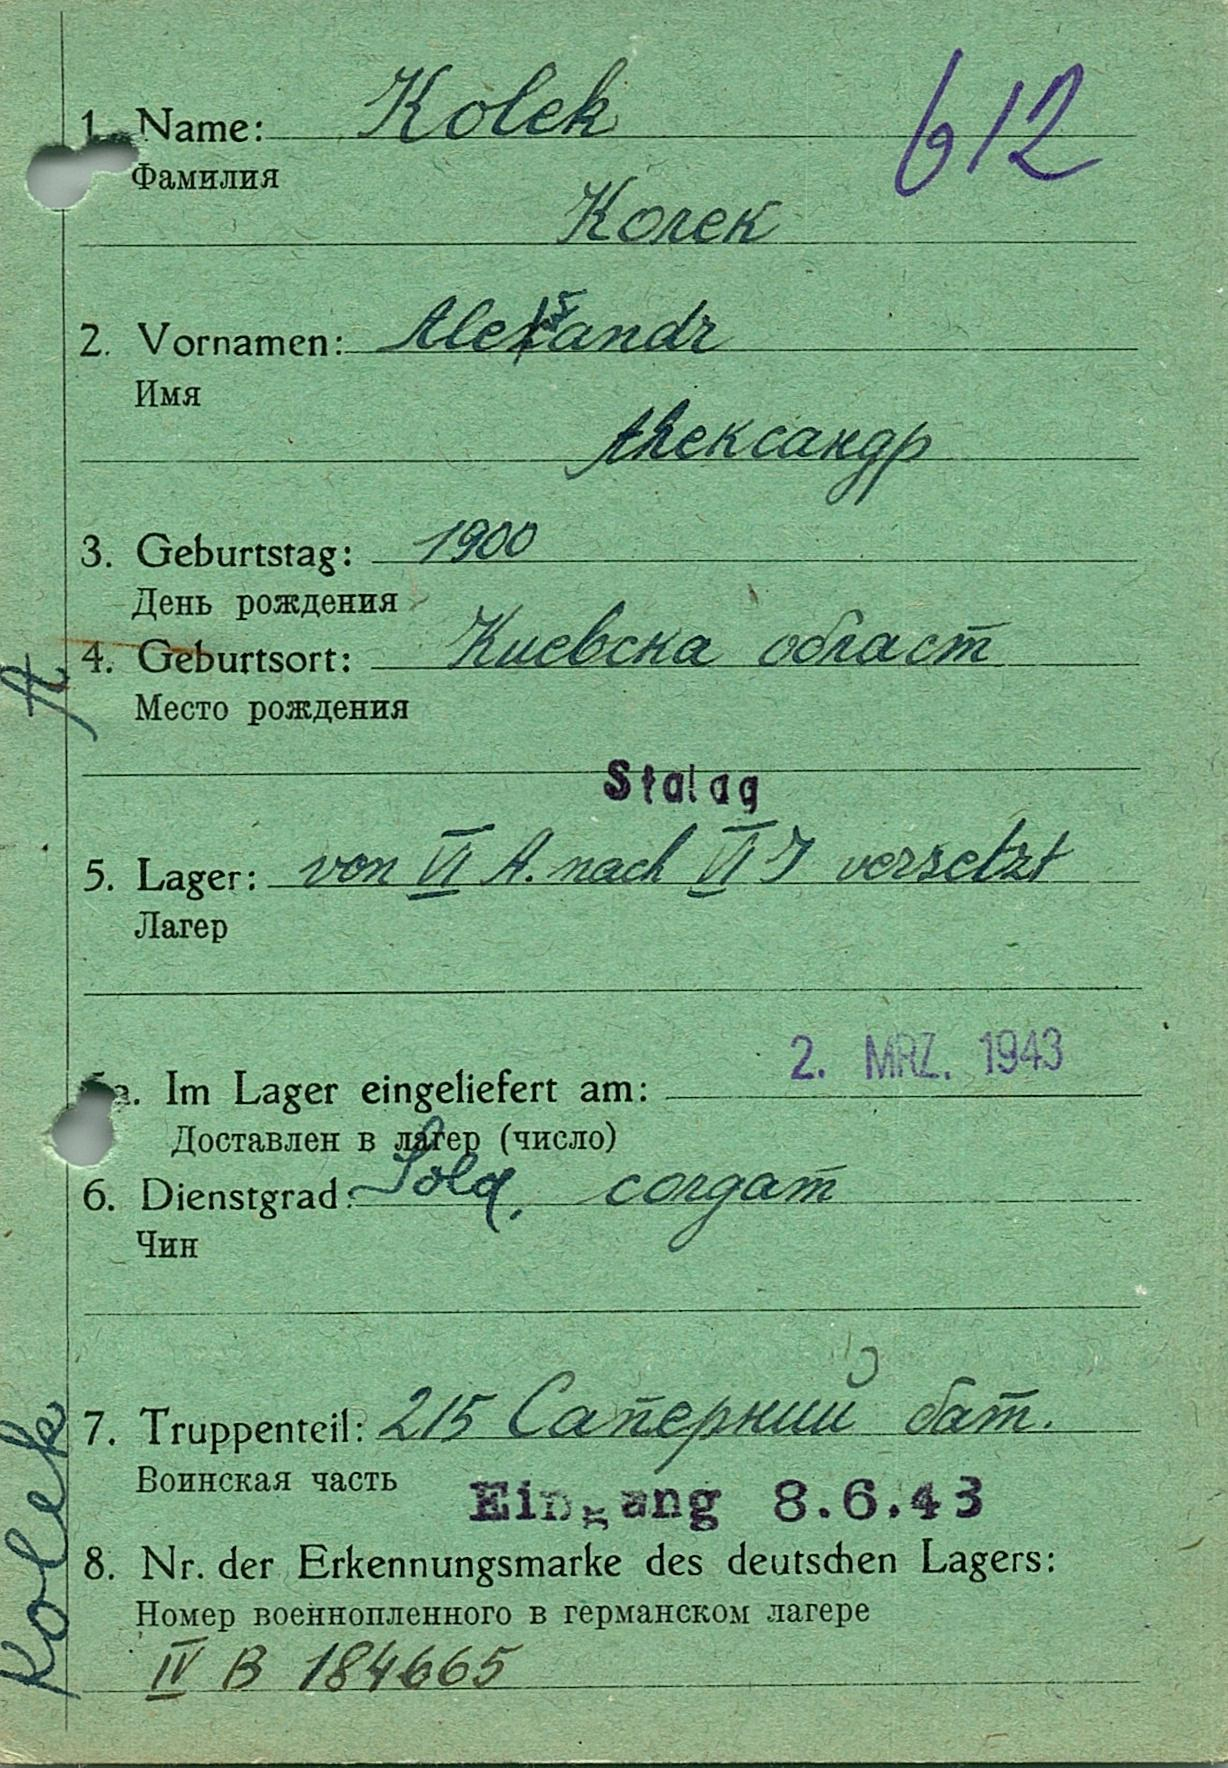 1. Name: Kolek
612
Фамилия
Колек
2. Vornamen: Aleksandr
Имя
Александр
3. Geburtstag: 1900
День рождения
4. Geburtsort: Киевска област
A
Место рождения
Stalag
5. Lager: von VI A. nach VI J versetzt
Лагер
2. MRZ. 1943
5a. Im Lager eingeliefert am:
Доставлен в лагер (число)
6. Dienstgrad: Sold. солдат
Чин
7. Truppenteil: 215 Саперний бат.
Воинская часть
Eingang 8.6.43
8. Nr. der Erkennungsmarke des deutschen Lagers:
Номер военнопленного в германском лагере
IV B 184665
Kolek